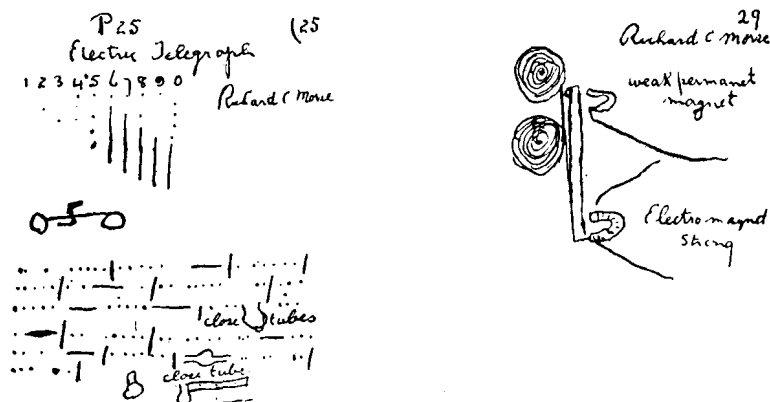 P 25 (25
Electric Telegraph
1 2 3 4 5 6 7 8 9 0
Richard C Morse
close tubes
close tube
29
Richard C Morse
weak permanet
magnet
Electro magnet
Strong